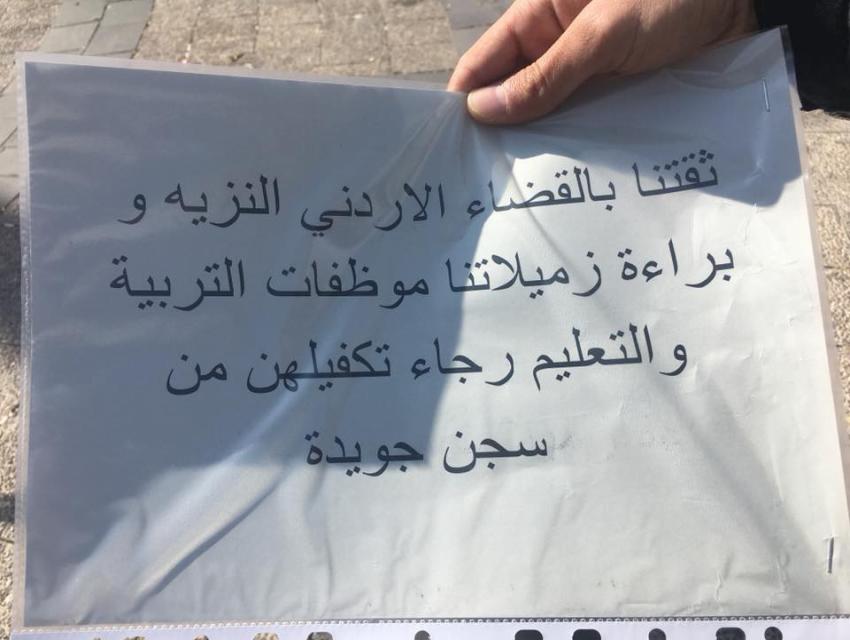 ثقتنا بالقضاء الاردني النزيه و
براءة زميلاتنا موظفات التربية
والتعليم رجاء تكفيلهن من
سجن جويدة